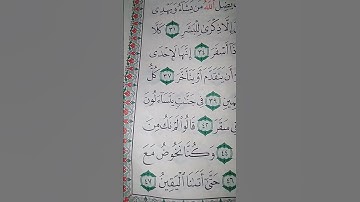 يُضِلُّ ٱللَّهُ مَن يَشَآءُ وَيَهْدِى
إِلَّا ذِكْرَىٰ لِلْبَشَرِ ٣١ كَلَّا
إِذَآ أَسْفَرَ ٣٤ إِنَّهَا لَإِحْدَى
أَن يَتَقَدَّمَ أَوْ يَتَأَخَّرَ ٣٧ كُلُّ
٣٩ فِى جَنَّٰتٍ يَتَسَآءَلُونَ
فِى سَقَرَ ٤٢ قَالُوا۟ لَمْ نَكُ مِنَ
٤٤ وَكُنَّا نَخُوضُ مَعَ
٤٦ حَتَّىٰٓ أَتَىٰنَا ٱلْيَقِينُ ٤٧